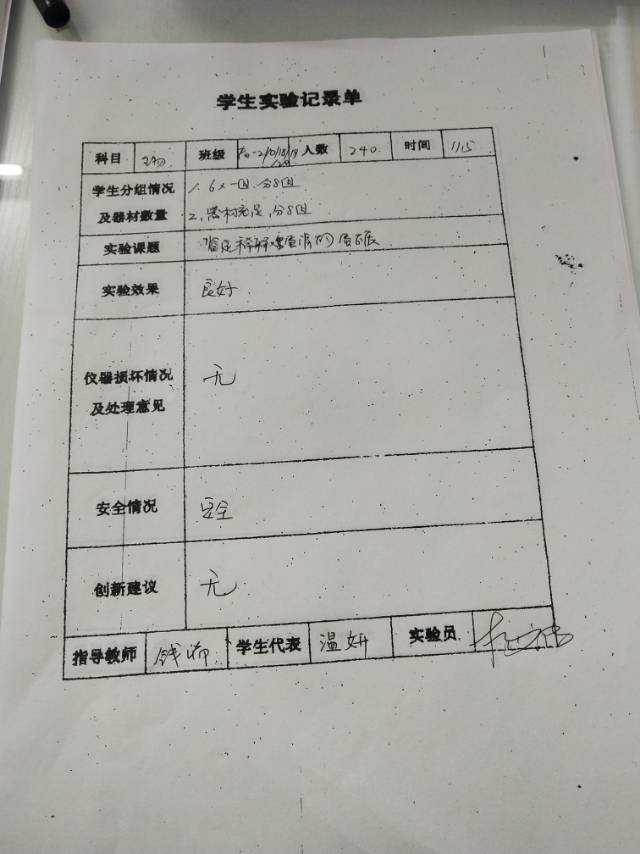 学生实验记录单
科目 班级 人数 240 时间 11.15
学生分组情况 1. 6人一组,分8组
及器材数量 2. 器材充足,分8组
实验课题
实验效果 良好
仪器损坏情况 无
及处理意见
安全情况 安全
创新建议 无
指导教师 钱 学生代表 温妍 实验员